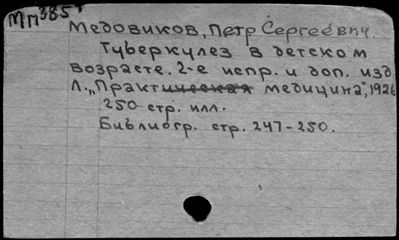 МП385
Медовиков, Петр Сергеевич.
Туберкулез в детском
возрасте. 2-е испр. и доп. изд.
Л., „Практическая медицина", 1926
250 стр. илл.
Библиогр. стр. 247-250.